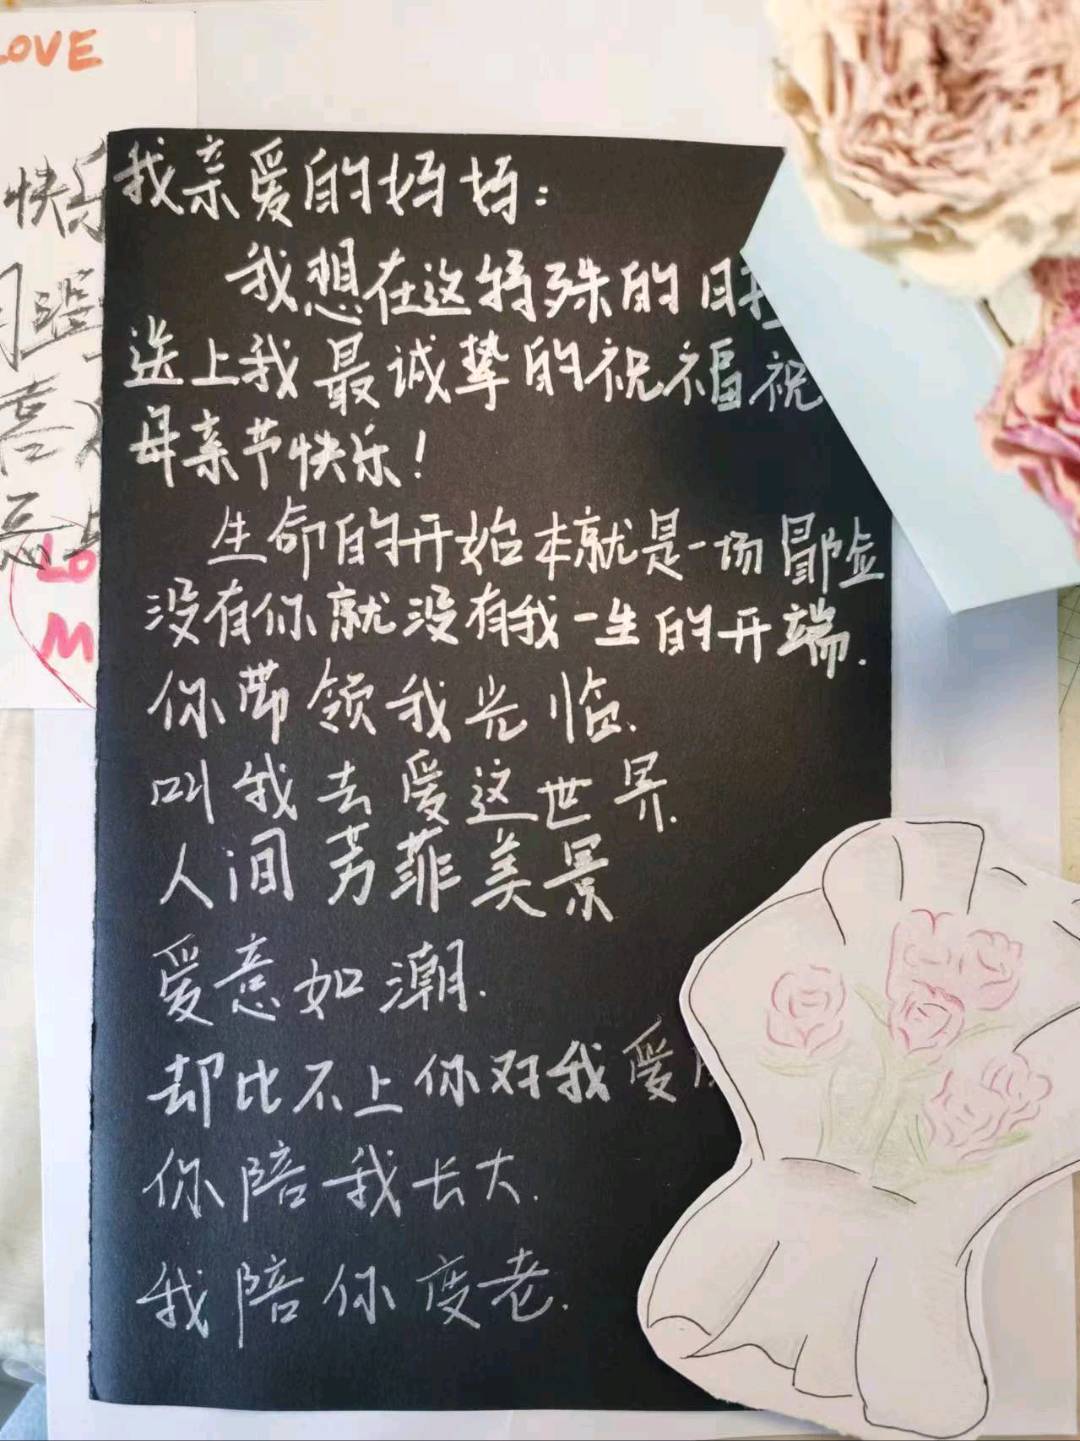 LOVE
快乐
我亲爱的妈妈：
我想在这特殊的日
送上我最诚挚的祝福祝
母亲节快乐！
生命的开始本就是一场冒险
没有你就没有我一生的开端.
你带领我光临.
叫我去爱这世界.
人间芳菲美景
爱意如潮.
却比不上你对我爱
你陪我长大.
我陪你变老.
喜
LO
M